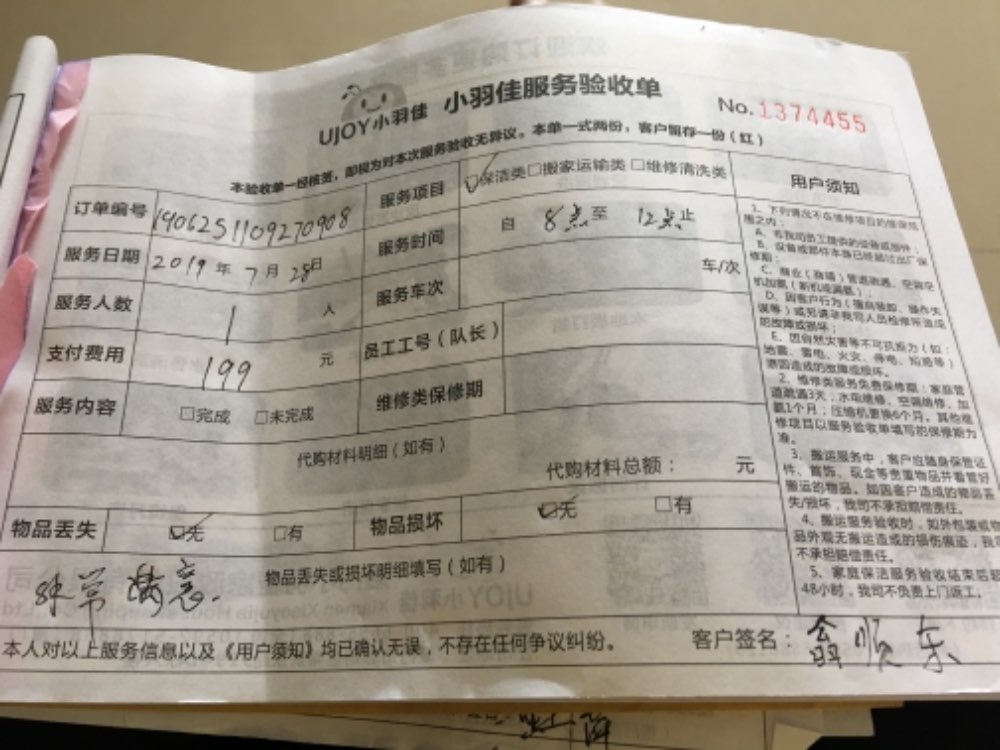 UJOY小羽佳 小羽佳服务验收单 No.1374455
本验收单一经核签，即视为对本次服务验收无异议。本单一式两份，客户留存一份（红）
订单编号 1906251109270908 服务项目 保洁类 □搬家运输类 □维修清洗类
服务日期 2019年7月28日 服务时间 自 8点 至 12点 止
服务人数 1 人 服务车次 车/次
支付费用 199 元 员工工号（队长）
服务内容 □完成 □未完成 维修类保修期
代购材料明细（如有）
代购材料总额： 元
物品丢失 无 □有 物品损坏 无 □有
物品丢失或损坏明细填写（如有）
非常满意.
本人对以上服务信息以及《用户须知》均已确认无误，不存在任何争议纠纷。 客户签名：翁顺东
用户须知
1、下列情况不在维修项目的维保范
围之内：
A、非我司员工提供的设备或部件；
B、设备或部件本身已经超过出厂保
修期；
C、商业（商铺）管道疏通、空调空
D、因客户行为（擅自装卸、操作失
误等）或另请非我司人员检修所造成
的故障或损坏；
E、因自然灾害等不可抗力（如：
地震、雷电、火灾、停电、短路等）
原因造成的故障或损坏。
2、维修类服务免费保修期：家庭管
道疏通3天；水电维修、空调维修、加
氟1个月；压缩机更换6个月。其他维
修项目以服务验收单填写的保修期为
准。
3、搬运服务中，客户应随身保管证
件、首饰、现金等贵重物品并看管好
搬运的物品。如因客户造成的物品丢
失/损坏，我司不承担赔偿责任。
4、搬运服务验收时，如外包装或物
品外观无搬运造成的损伤痕迹，我司
不承担赔偿责任。
5、家庭保洁服务验收结束后超
48小时，我司不负责上门返工。